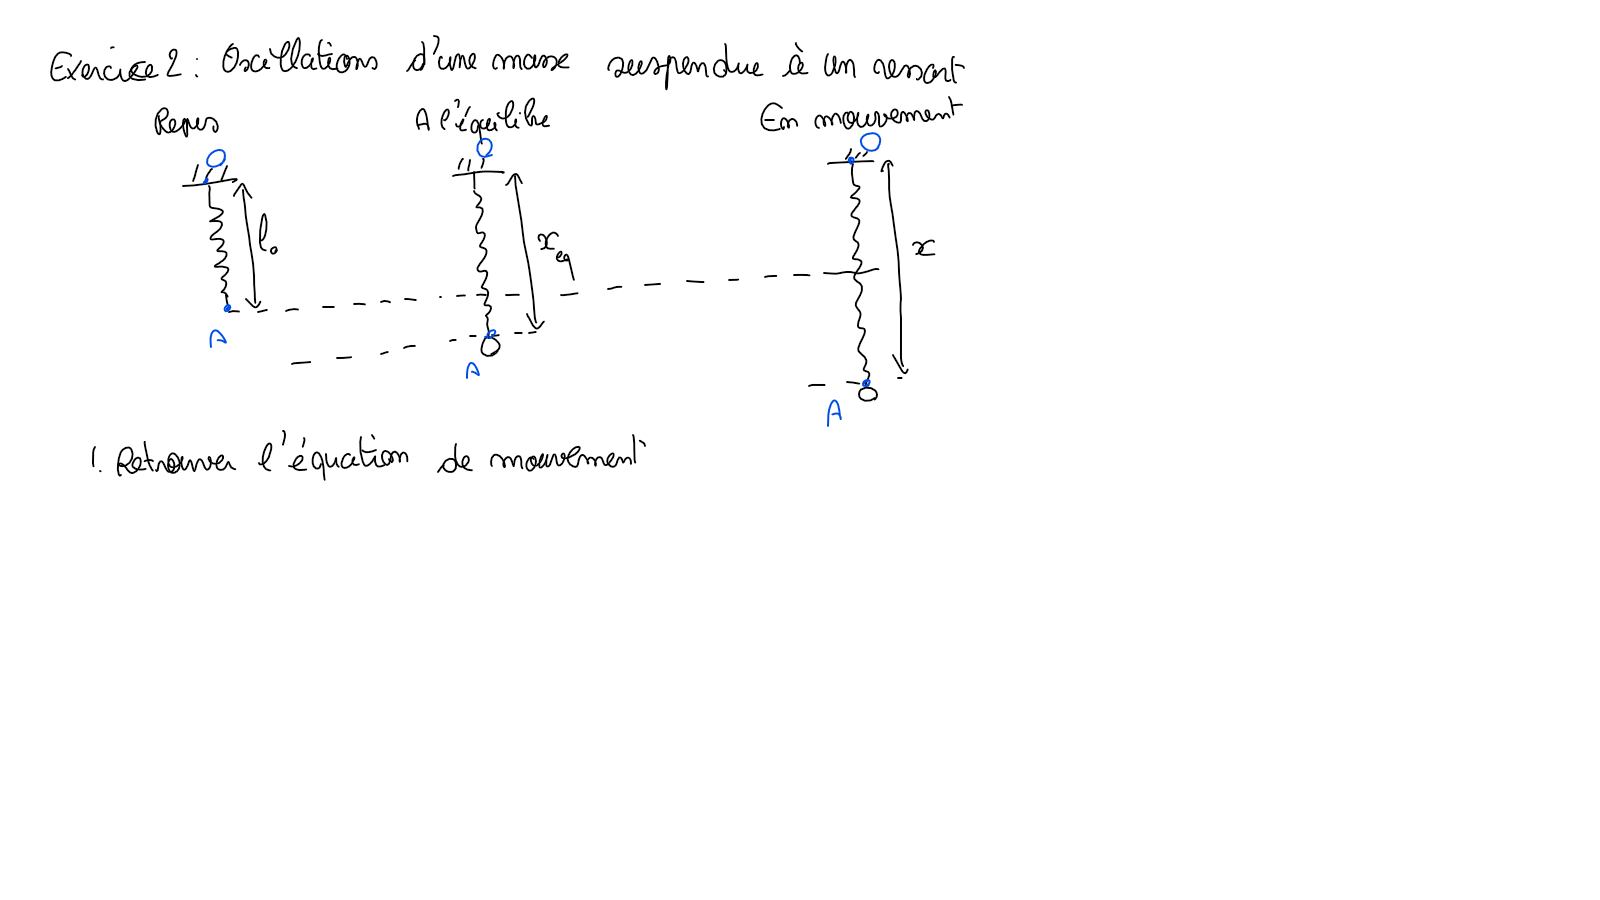 Exercice 2 : Oscillations d'une masse suspendue à un ressort
Repos A l'équilibre En mouvement
O O O
l₀ x_eq x
A A A
1. Retrouver l'équation de mouvement